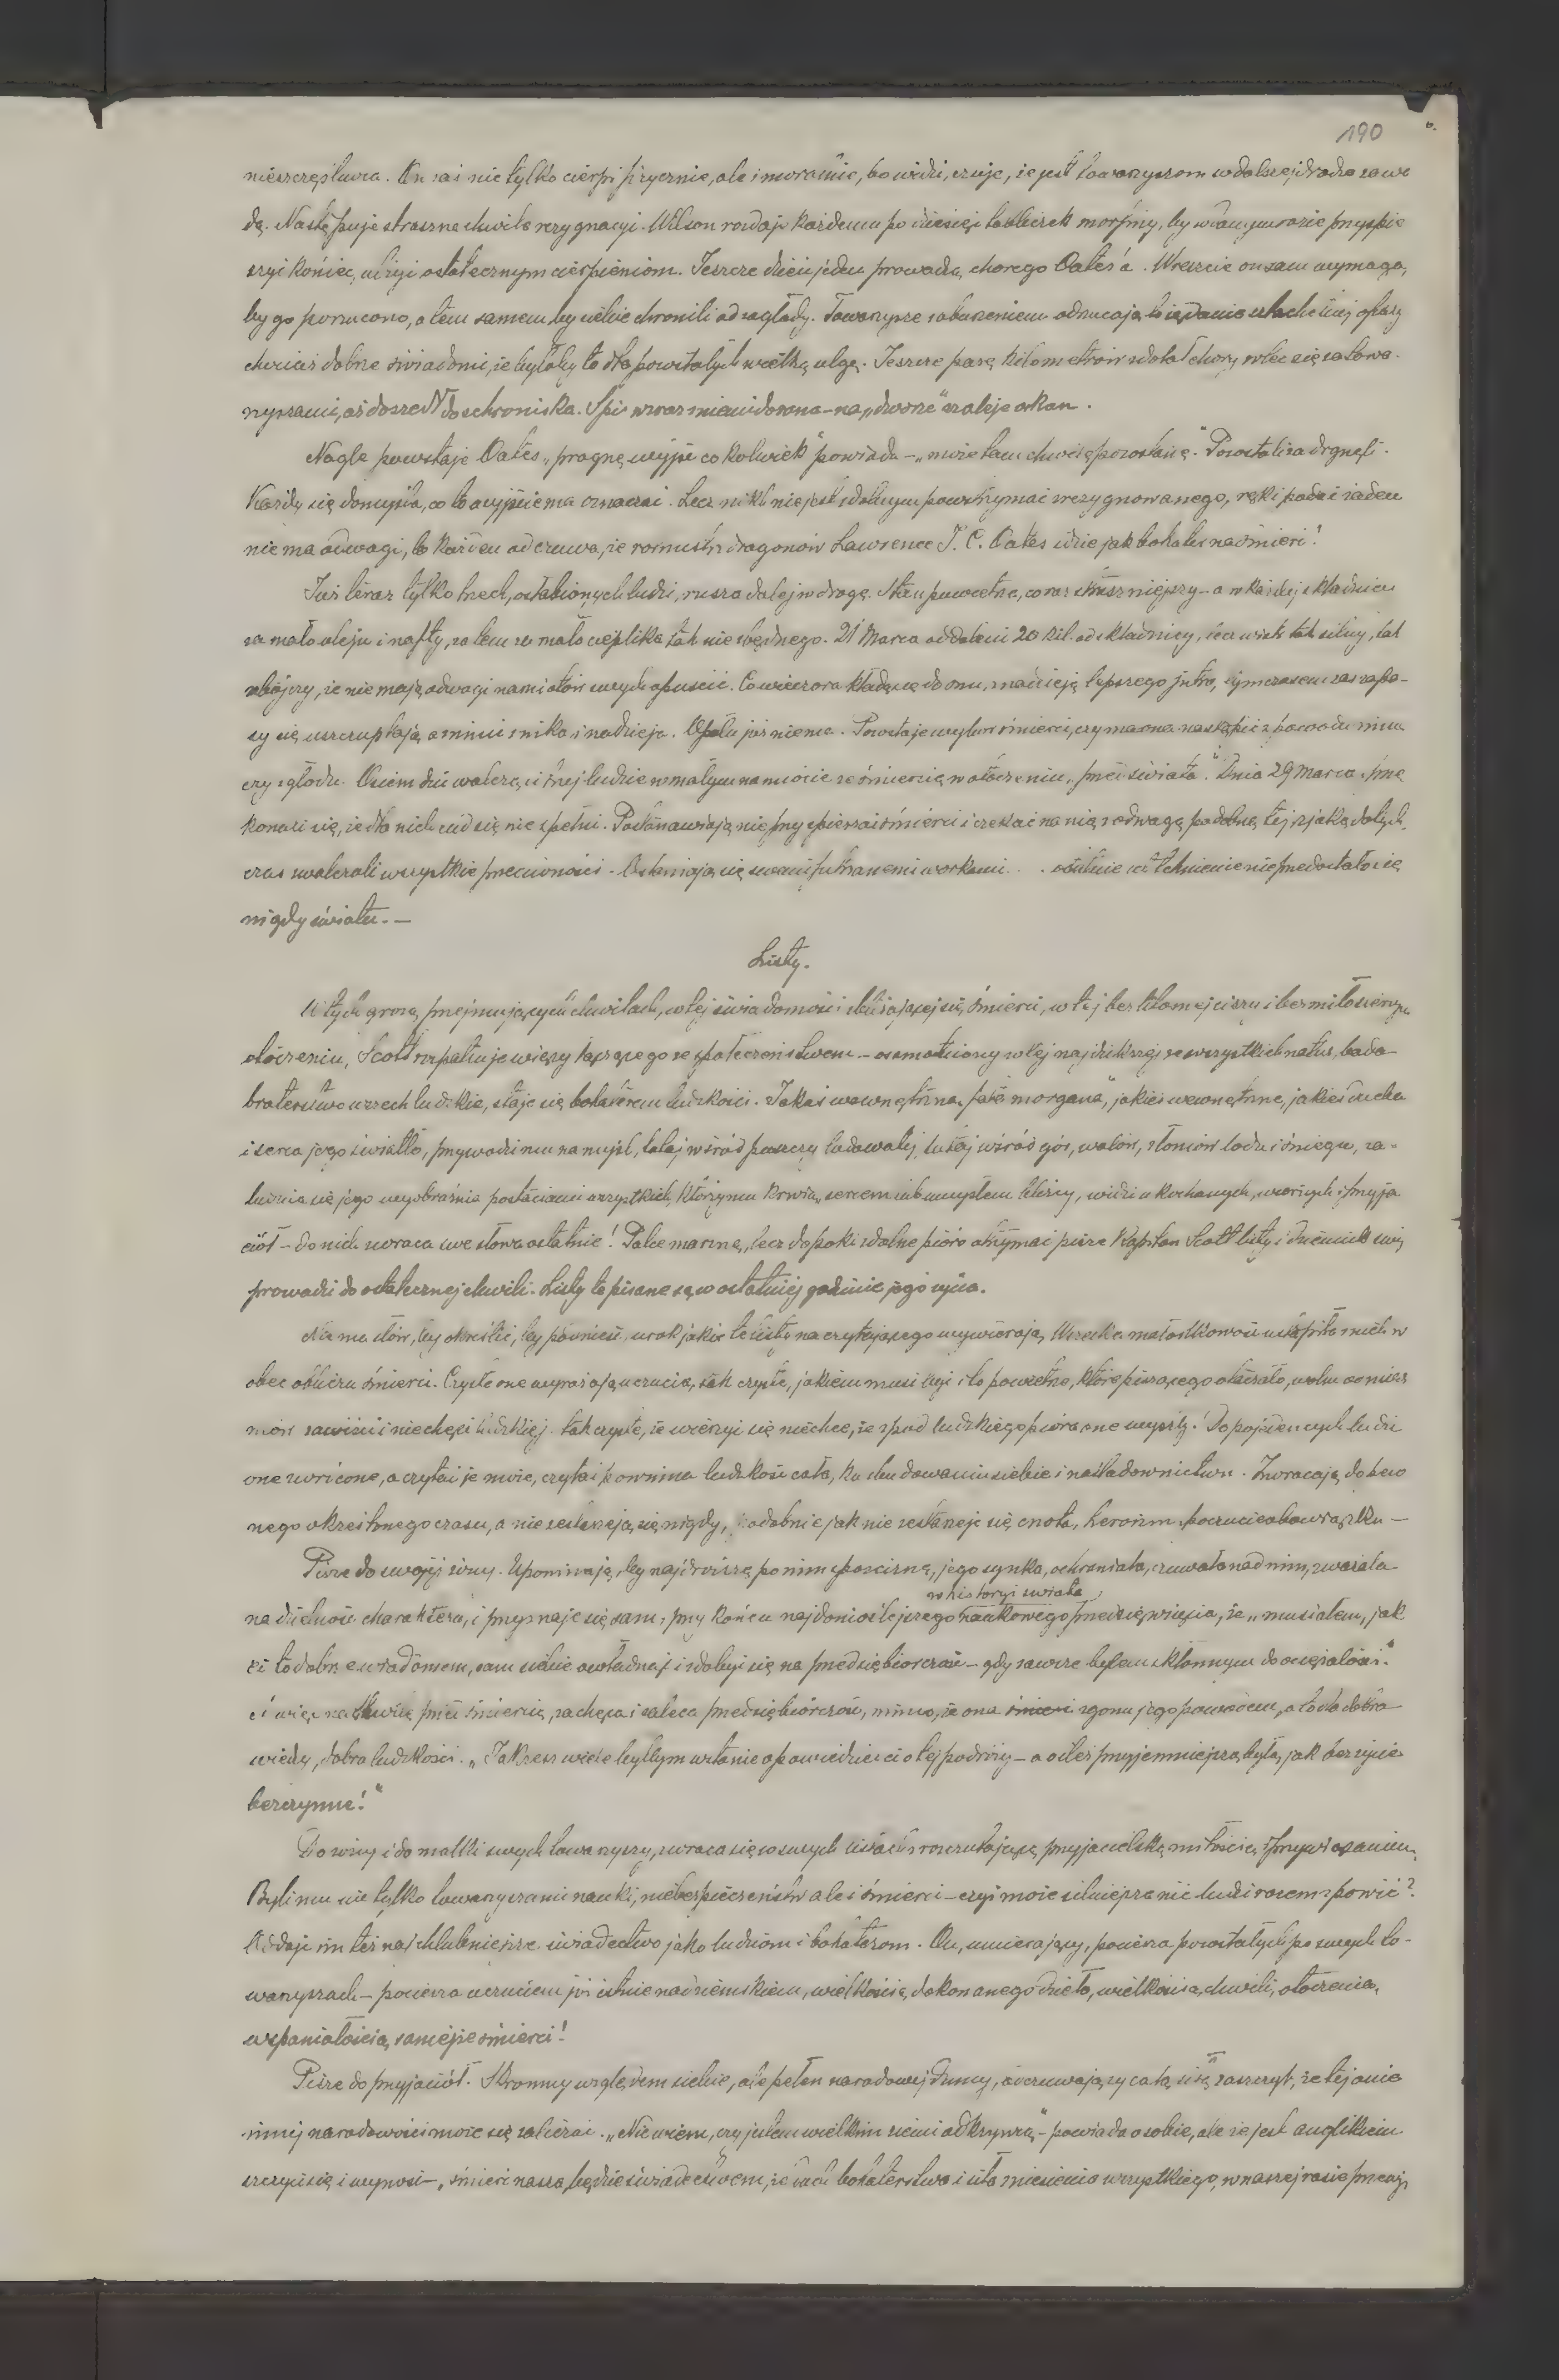 190
nieszczęśliwa. On zaś nie tylko cierpi fizycznie, ale i moralnie, bo widzi, czuje, że jest towarzyszom w dalszej drodze zawa
dą. Następuje straszna chwila rezygnacyi. Wilson rozdaje każdemu po dziesięć tabliczek morfiny, by w danym razie przyspie
szyć koniec, ulżyć ostatecznym cierpieniom. Jeszcze dzień jeden prowadzą chorego Oates'a. Wreszcie on sam wymaga,
by go porzucono, a tem samem by siebie chronili od zagłady. Towarzysze z oburzeniem odrzucają to żądanie szlachetnej ofiary
chociaż dobrze świadomi, że byłaby to dla pozostałych wielką ulgą. Jeszcze parę kilometrów zdołał chory wlec się za towa-
rzyszami, aż doszedł do schroniska. Śpi wraz z nimi do rana – na „dworze" szaleje orkan.
Nagle powstaje Oates „pragnę wyjść cokolwiek" powiada – „może tam chwilę pozostanę." Pozostali zadrgnęli.
Każdy się domyśla, co to wyjście ma oznaczać. Lecz nikt nie jest zdolnym powstrzymać zrezygnowanego, ręki podać żaden
nie ma odwagi, bo każden odczuwa, że rotmistrz dragonów Lawrence J. C. Oates idzie jak bohater na śmierć!
Już teraz tylko trzech, osłabionych ludzi, rusza dalej w drogę. Stan powietrza, coraz straszniejszy – a w każdej składnicy
za mało oleju i nafty, zatem za mało cieplika tak niezbędnego. 21 Marca oddaleni 20 kil. od składnicy, lecz wicher tak silny, tak
zabójczy, że nie mają odwagi namiotów swych opuścić. Co wieczora kładą się do snu, w nadzieją lepszego jutra, tymczasem zaś zapa-
sy się uszczuplają a z nimi znika i nadzieja. Opału już niema. Pozostaje wybór śmierci, czy ma ona nastąpić z powodu zimna
czy z głodu. Osiem dni walczą ci trzej ludzie w małym namiocie ze śmiercią w otoczeniu „pięści świata". Dnia 29 Marca prze
konali się, że dla nich cud się nie spełni. Postanawiają nie przyspieszać śmierci i czekać na nią z odwagą podobną tej z jaką dotych
czas zwalczali wszystkie przeciwności. Osłaniają się swemi futrzanemi workami . . ostatnie ich tchnienie nie przedostało się
nigdy światu. —
Listy.
W tych grozą przejmujących chwilach, w tej świadomości zbliżającej się śmierci, w tej beztłomej ciszy i bezmiłosiernym
otoczeniu, Scott rozpatruje więzy łączące go ze społeczeństwem – osamotniony w tej najdzikszej ze wszystkich natur, bada
braterstwo wszech ludzkie, staje się bohaterem ludzkości. Jakaś wewnętrzna „fata morgana", jakieś wewnętrzne, jakieś ducha
i serca jego światło, przywodzi mu na myśl, tutaj wśród puszczy lodowatej, tutaj wśród gór, wałów, złomów lodu i śniegu, za-
ludnia się jego wyobraźnia postaciami wszystkich, którzy mu krwią, sercem lub umysłem bliscy, widzi ukochanych, swoich i przyja
ciół – do nich zwraca swe słowa ostatnie! Palce marzną, lecz dopóki zdolne pióro utrzymać pisze Kapitan Scott listy i dziennik swój
prowadzi do ostatecznej chwili. Listy te pisane są w ostatniej godzinie jego życia.
Nie ma słów, by określić, by podnieść urok jakie te listy na czytającego wywierają. Wszelka małostkowość ustąpiła z nich w
obec oblicza śmierci. Czyste one wyrażają uczucia, tak czyste, jakiem musi być i to powietrze, które piszącego otaczało, wolne od mias
mów zawiści i niechęci ludzkiej, tak czyste, że wierzyć się nie chce, że z pod ludzkiego pióra one wyszły! Do pojedenczych ludzi
one zwrócone, a czytać je może, czytać powinna ludzkość cała, ku zbudowaniu siebie i naśladownictwu. Zwracają do pew
nego określonego czasu, a nie zestarzeją się nigdy, podobnie jak nie zestarzeje się cnota, heroizm poczucie obowiązku —
Pisze do swojej żony. Upomina ją, by najdroższą po nim spuściznę, jego synka, ochraniała, czuwała nad nim, zważała
w historyi świata
na dzielność charakteru, i przyznaje się sam, przy końcu najdonioślejszego naukowego przedsięwzięcia, że „musiałem, jak
ci to dobrze wiadomem, sam siebie owładnąć i zdobyć się na przedsiębiorczość – gdy zawsze byłem skłonnym do ociężałości."
a więc na chwilę przed śmiercią, zachęca i zaleca przedsiębiorczość, mimo, że ona śmierci zgonu jego powodem, a to dla dobra
wiedzy, dobra ludzkości. „Jakżesz wiele byłbym w stanie opowiedzieć ci o tej podróży – a o ileż przyjemniejszą była, jak bez życie
bezczynne!"
Do żony i do matki swych towarzyszy, zwraca się w swych listach z rozczulającą przyjacielską miłością i przywiązaniem.
Byli mu nie tylko towarzyszami nauki, niebezpieczeństw ale i śmierci – czyż może silniejsza nić ludzi razem spowić?
Oddaje im też najchlubniejsze świadectwo jako ludziom i bohaterom. On, umierający, pociesza pozostałych po swych to-
warzyszach – pociesza uczuciem już istnie nadziemskiem, wielkością dokonanego dzieła, wielkością chwili, otoczenia,
wspaniałością samejże śmierci!
Pisze do przyjaciół. Skromny względem siebie, ale pełen narodowej dumy, odczuwający całą siłą zaszczyt, że tej a nie
innej narodowości może się zaliczać. „Nie wiem, czy jestem wielkim ziemi odkrywcą" – powiada o sobie, ale że jest anglikiem
szczyci się i wynosi – „śmierć nasza będzie świadectwem, że duch bohaterstwa i siła zniesienia wszystkiego, w naszej rasie przeży